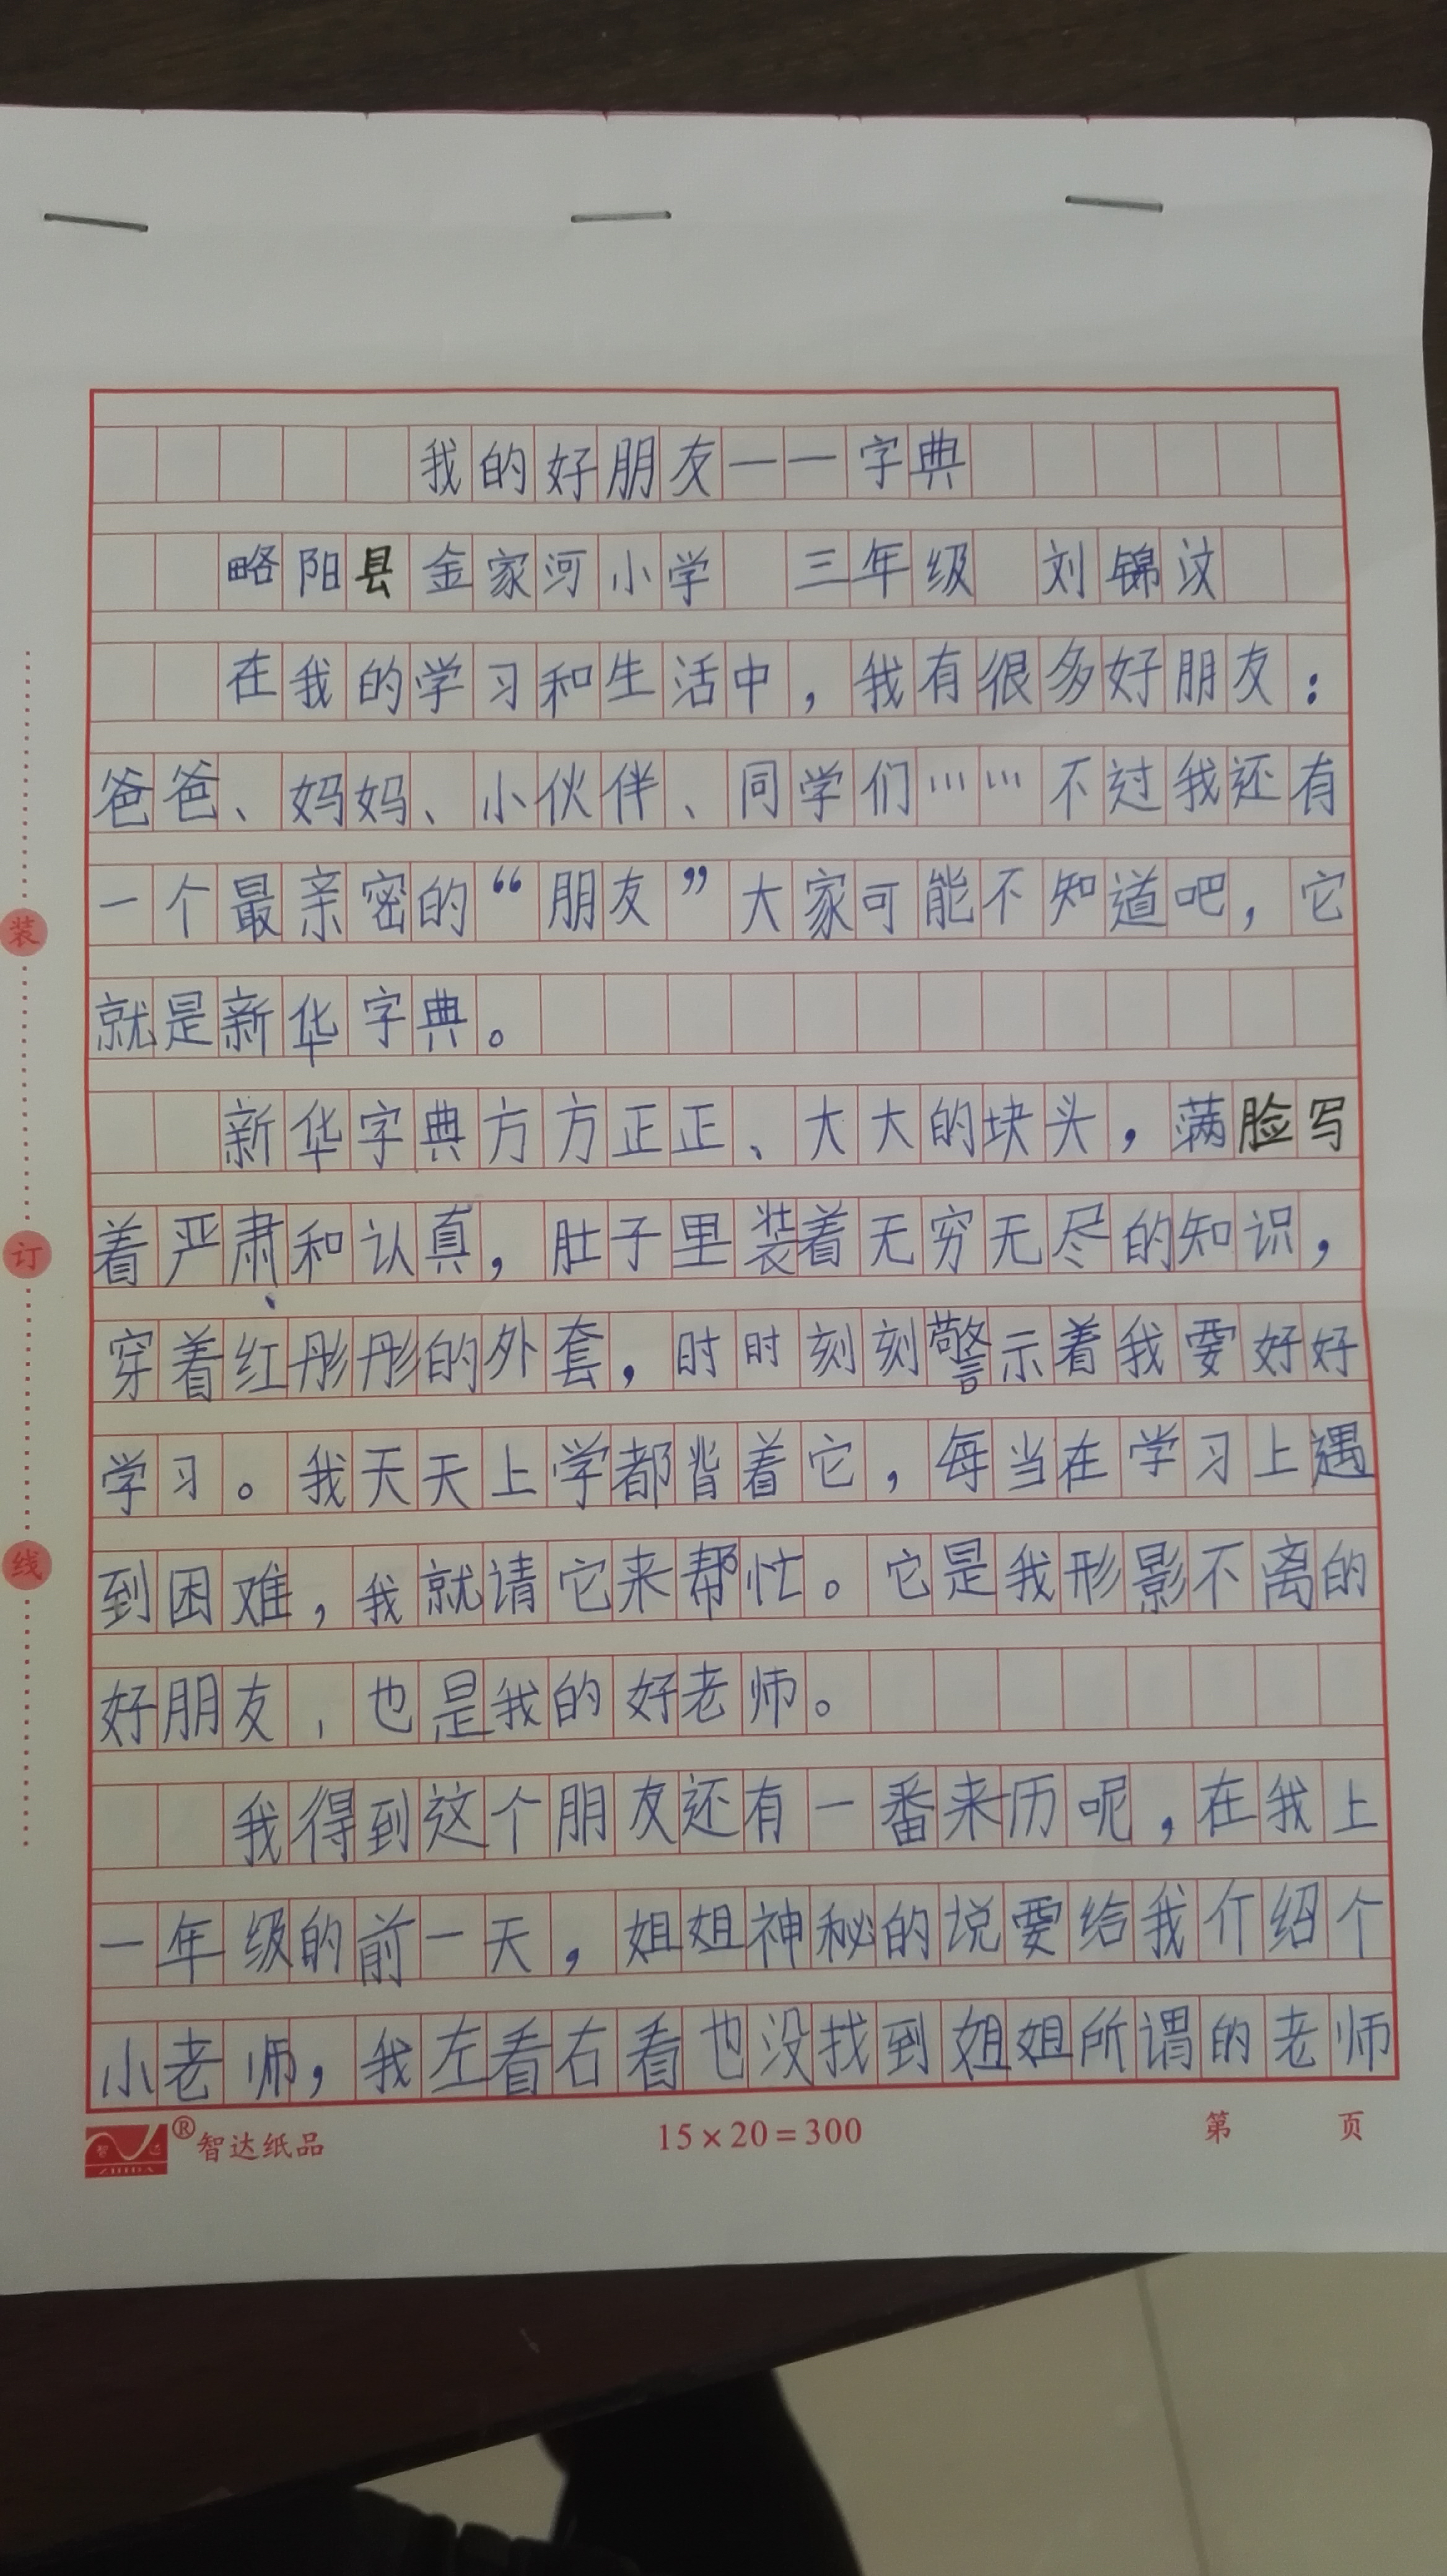 我的好朋友——字典
略阳县金家河小学 三年级 刘锦汶
在我的学习和生活中，我有很多好朋友：
爸爸、妈妈、小伙伴、同学们……不过我还有
一个最亲密的“朋友”大家可能不知道吧，它
就是新华字典。
新华字典方方正正、大大的块头，满脸写
着严肃和认真，肚子里装着无穷无尽的知识，
穿着红彤彤的外套，时时刻刻警示着我要好好
学习。我天天上学都背着它，每当在学习上遇
到困难，我就请它来帮忙。它是我形影不离的
好朋友，也是我的好老师。
我得到这个朋友还有一番来历呢，在我上
一年级的前一天，姐姐神秘的说要给我介绍个
小老师，我左看右看也没找到姐姐所谓的老师
装
订
线
智达
ZHIDA
®智达纸品
15×20=300
第 页